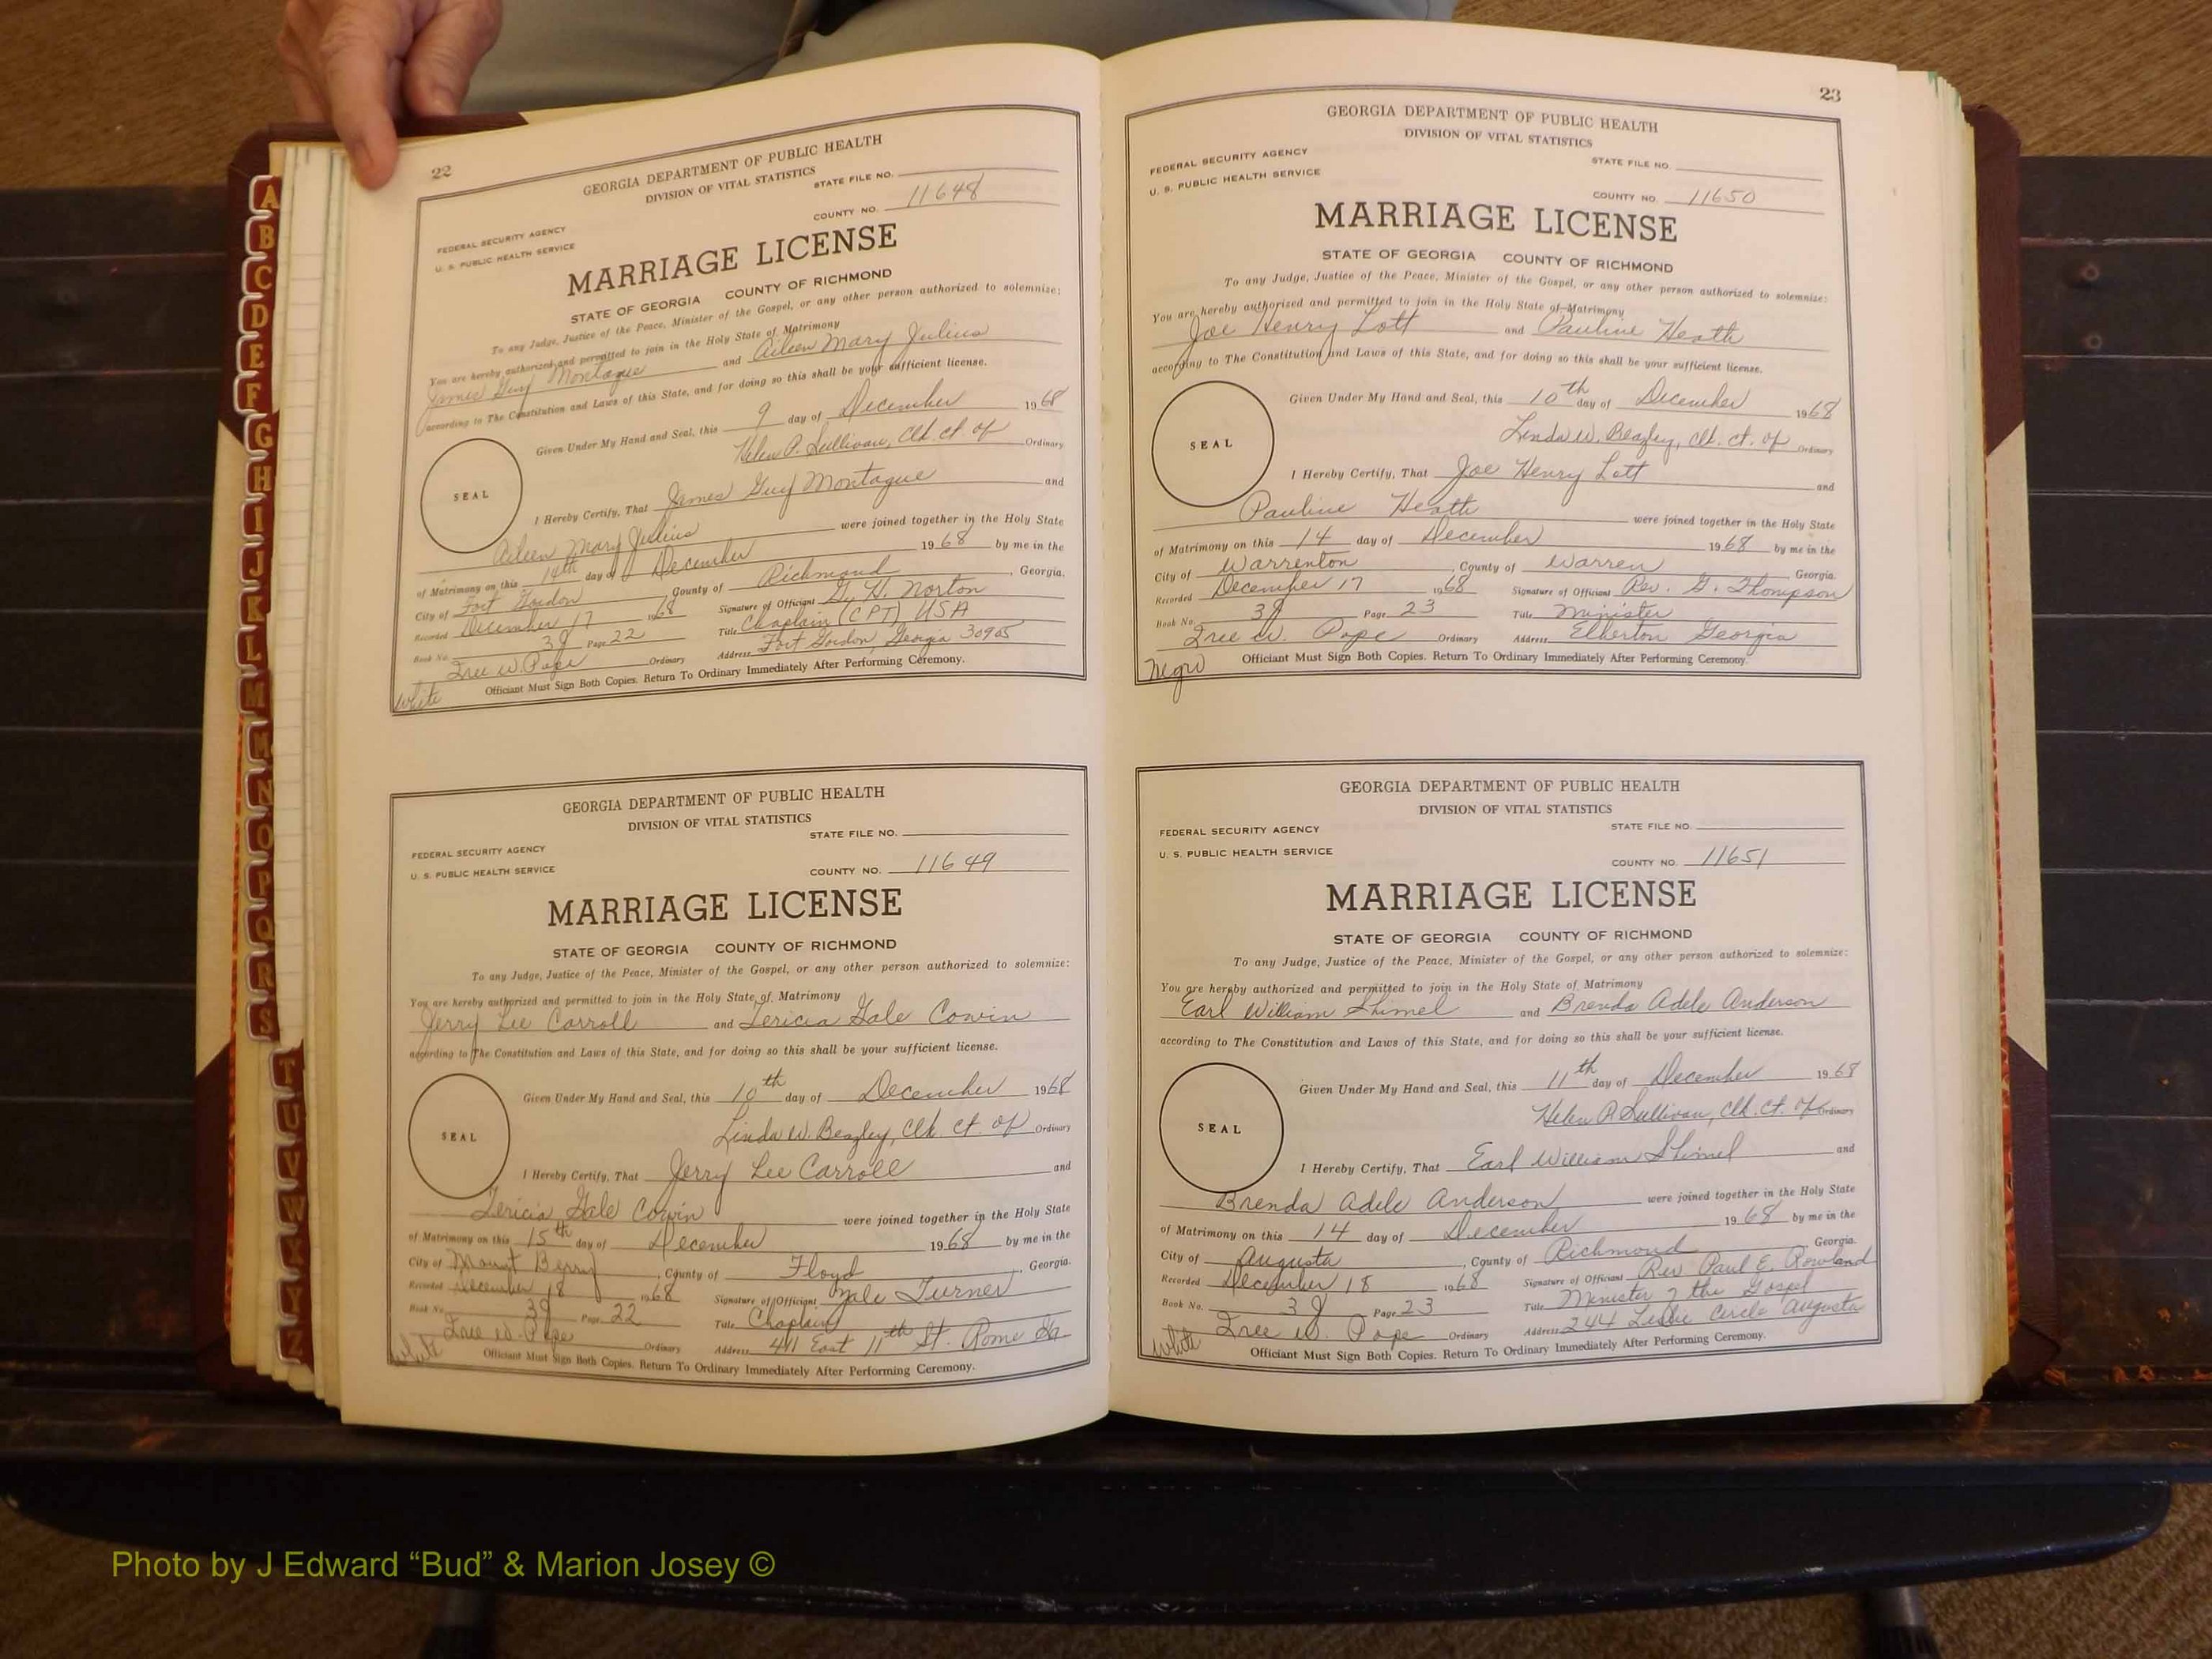 22
GEORGIA DEPARTMENT OF PUBLIC HEALTH
DIVISION OF VITAL STATISTICS
STATE FILE NO.
FEDERAL SECURITY AGENCY
COUNTY NO. 11648
U. S. PUBLIC HEALTH SERVICE
MARRIAGE LICENSE
STATE OF GEORGIA COUNTY OF RICHMOND
To any Judge, Justice of the Peace, Minister of the Gospel, or any other person authorized to solemnize:
You are hereby authorized and permitted to join in the Holy State of Matrimony
James Guy Montague and Aileen Mary Julius
according to The Constitution and Laws of this State, and for doing so this shall be your sufficient license.
Given Under My Hand and Seal, this 9 day of December 1968
Helen P. Sullivan, Clk. ct. of Ordinary
SEAL
I Hereby Certify, That James Guy Montague and
Aileen Mary Julius were joined together in the Holy State
of Matrimony on this 14th day of December 1968 by me in the
City of Fort Gordon, County of Richmond, Georgia.
Recorded December 17 1968 Signature of Officiant G. H. Norton
Book No. 38 Page 22 Title Chaplain (CPT) USA
Iree W. Pope Ordinary Address Fort Gordon, Georgia 30905
Officiant Must Sign Both Copies. Return To Ordinary Immediately After Performing Ceremony.
White
GEORGIA DEPARTMENT OF PUBLIC HEALTH
DIVISION OF VITAL STATISTICS
STATE FILE NO.
FEDERAL SECURITY AGENCY
U. S. PUBLIC HEALTH SERVICE
COUNTY NO. 11649
MARRIAGE LICENSE
STATE OF GEORGIA COUNTY OF RICHMOND
To any Judge, Justice of the Peace, Minister of the Gospel, or any other person authorized to solemnize:
You are hereby authorized and permitted to join in the Holy State of Matrimony
Jerry Lee Carroll and Tericia Gale Cowin
according to The Constitution and Laws of this State, and for doing so this shall be your sufficient license.
Given Under My Hand and Seal, this 10th day of December 1968
Linda W. Beazley, Clk. ct. of Ordinary
SEAL
I Hereby Certify, That Jerry Lee Carroll and
Tericia Gale Cowin were joined together in the Holy State
of Matrimony on this 15th day of December 1968 by me in the
City of Mount Berry, County of Floyd, Georgia.
Recorded December 18 1968 Signature of Officiant Dale Turner
Book No. 38 Page 22 Title Chaplain
Iree W. Pope Ordinary Address 411 East 11th St. Rome Ga
White
Officiant Must Sign Both Copies. Return To Ordinary Immediately After Performing Ceremony.
23
GEORGIA DEPARTMENT OF PUBLIC HEALTH
DIVISION OF VITAL STATISTICS
FEDERAL SECURITY AGENCY
STATE FILE NO.
U. S. PUBLIC HEALTH SERVICE
COUNTY NO. 11650
MARRIAGE LICENSE
STATE OF GEORGIA COUNTY OF RICHMOND
To any Judge, Justice of the Peace, Minister of the Gospel, or any other person authorized to solemnize:
You are hereby authorized and permitted to join in the Holy State of Matrimony
Joe Henry Lott and Pauline Heath
according to The Constitution and Laws of this State, and for doing so this shall be your sufficient license.
Given Under My Hand and Seal, this 10th day of December 1968
Linda W. Beazley, Clk. ct. of Ordinary
SEAL
I Hereby Certify, That Joe Henry Lott and
Pauline Heath were joined together in the Holy State
of Matrimony on this 14 day of December 1968 by me in the
City of Warrenton, County of Warren Georgia.
Recorded December 17 1968 Signature of Officiant Rev. G. Thompson
Book No. 38 Page 23 Title Minister
Iree W. Pope Ordinary Address Elberton Georgia
Negro
Officiant Must Sign Both Copies. Return To Ordinary Immediately After Performing Ceremony.
GEORGIA DEPARTMENT OF PUBLIC HEALTH
DIVISION OF VITAL STATISTICS
FEDERAL SECURITY AGENCY
STATE FILE NO.
U. S. PUBLIC HEALTH SERVICE
COUNTY NO. 11651
MARRIAGE LICENSE
STATE OF GEORGIA COUNTY OF RICHMOND
To any Judge, Justice of the Peace, Minister of the Gospel, or any other person authorized to solemnize:
You are hereby authorized and permitted to join in the Holy State of Matrimony
Earl William Shimel and Brenda Adele Anderson
according to The Constitution and Laws of this State, and for doing so this shall be your sufficient license.
Given Under My Hand and Seal, this 11th day of December 1968
Helen P. Sullivan, Clk. ct. of Ordinary
SEAL
I Hereby Certify, That Earl William Shimel and
Brenda Adele Anderson were joined together in the Holy State
of Matrimony on this 14 day of December 1968 by me in the
City of Augusta, County of Richmond Georgia.
Recorded December 18 1968 Signature of Officiant Rev Paul E. Rowland
Book No. 38 Page 23 Title Minister of the Gospel
Iree W. Pope Ordinary Address 244 Leslie Circle Augusta
White
Officiant Must Sign Both Copies. Return To Ordinary Immediately After Performing Ceremony.
A
B
C
D
E
F
G
H
I
J
K
L
M
Mc
N
O
P
Q
R
S
T
U
V
W
X
Y
Z
Photo by J Edward “Bud” & Marion Josey ©